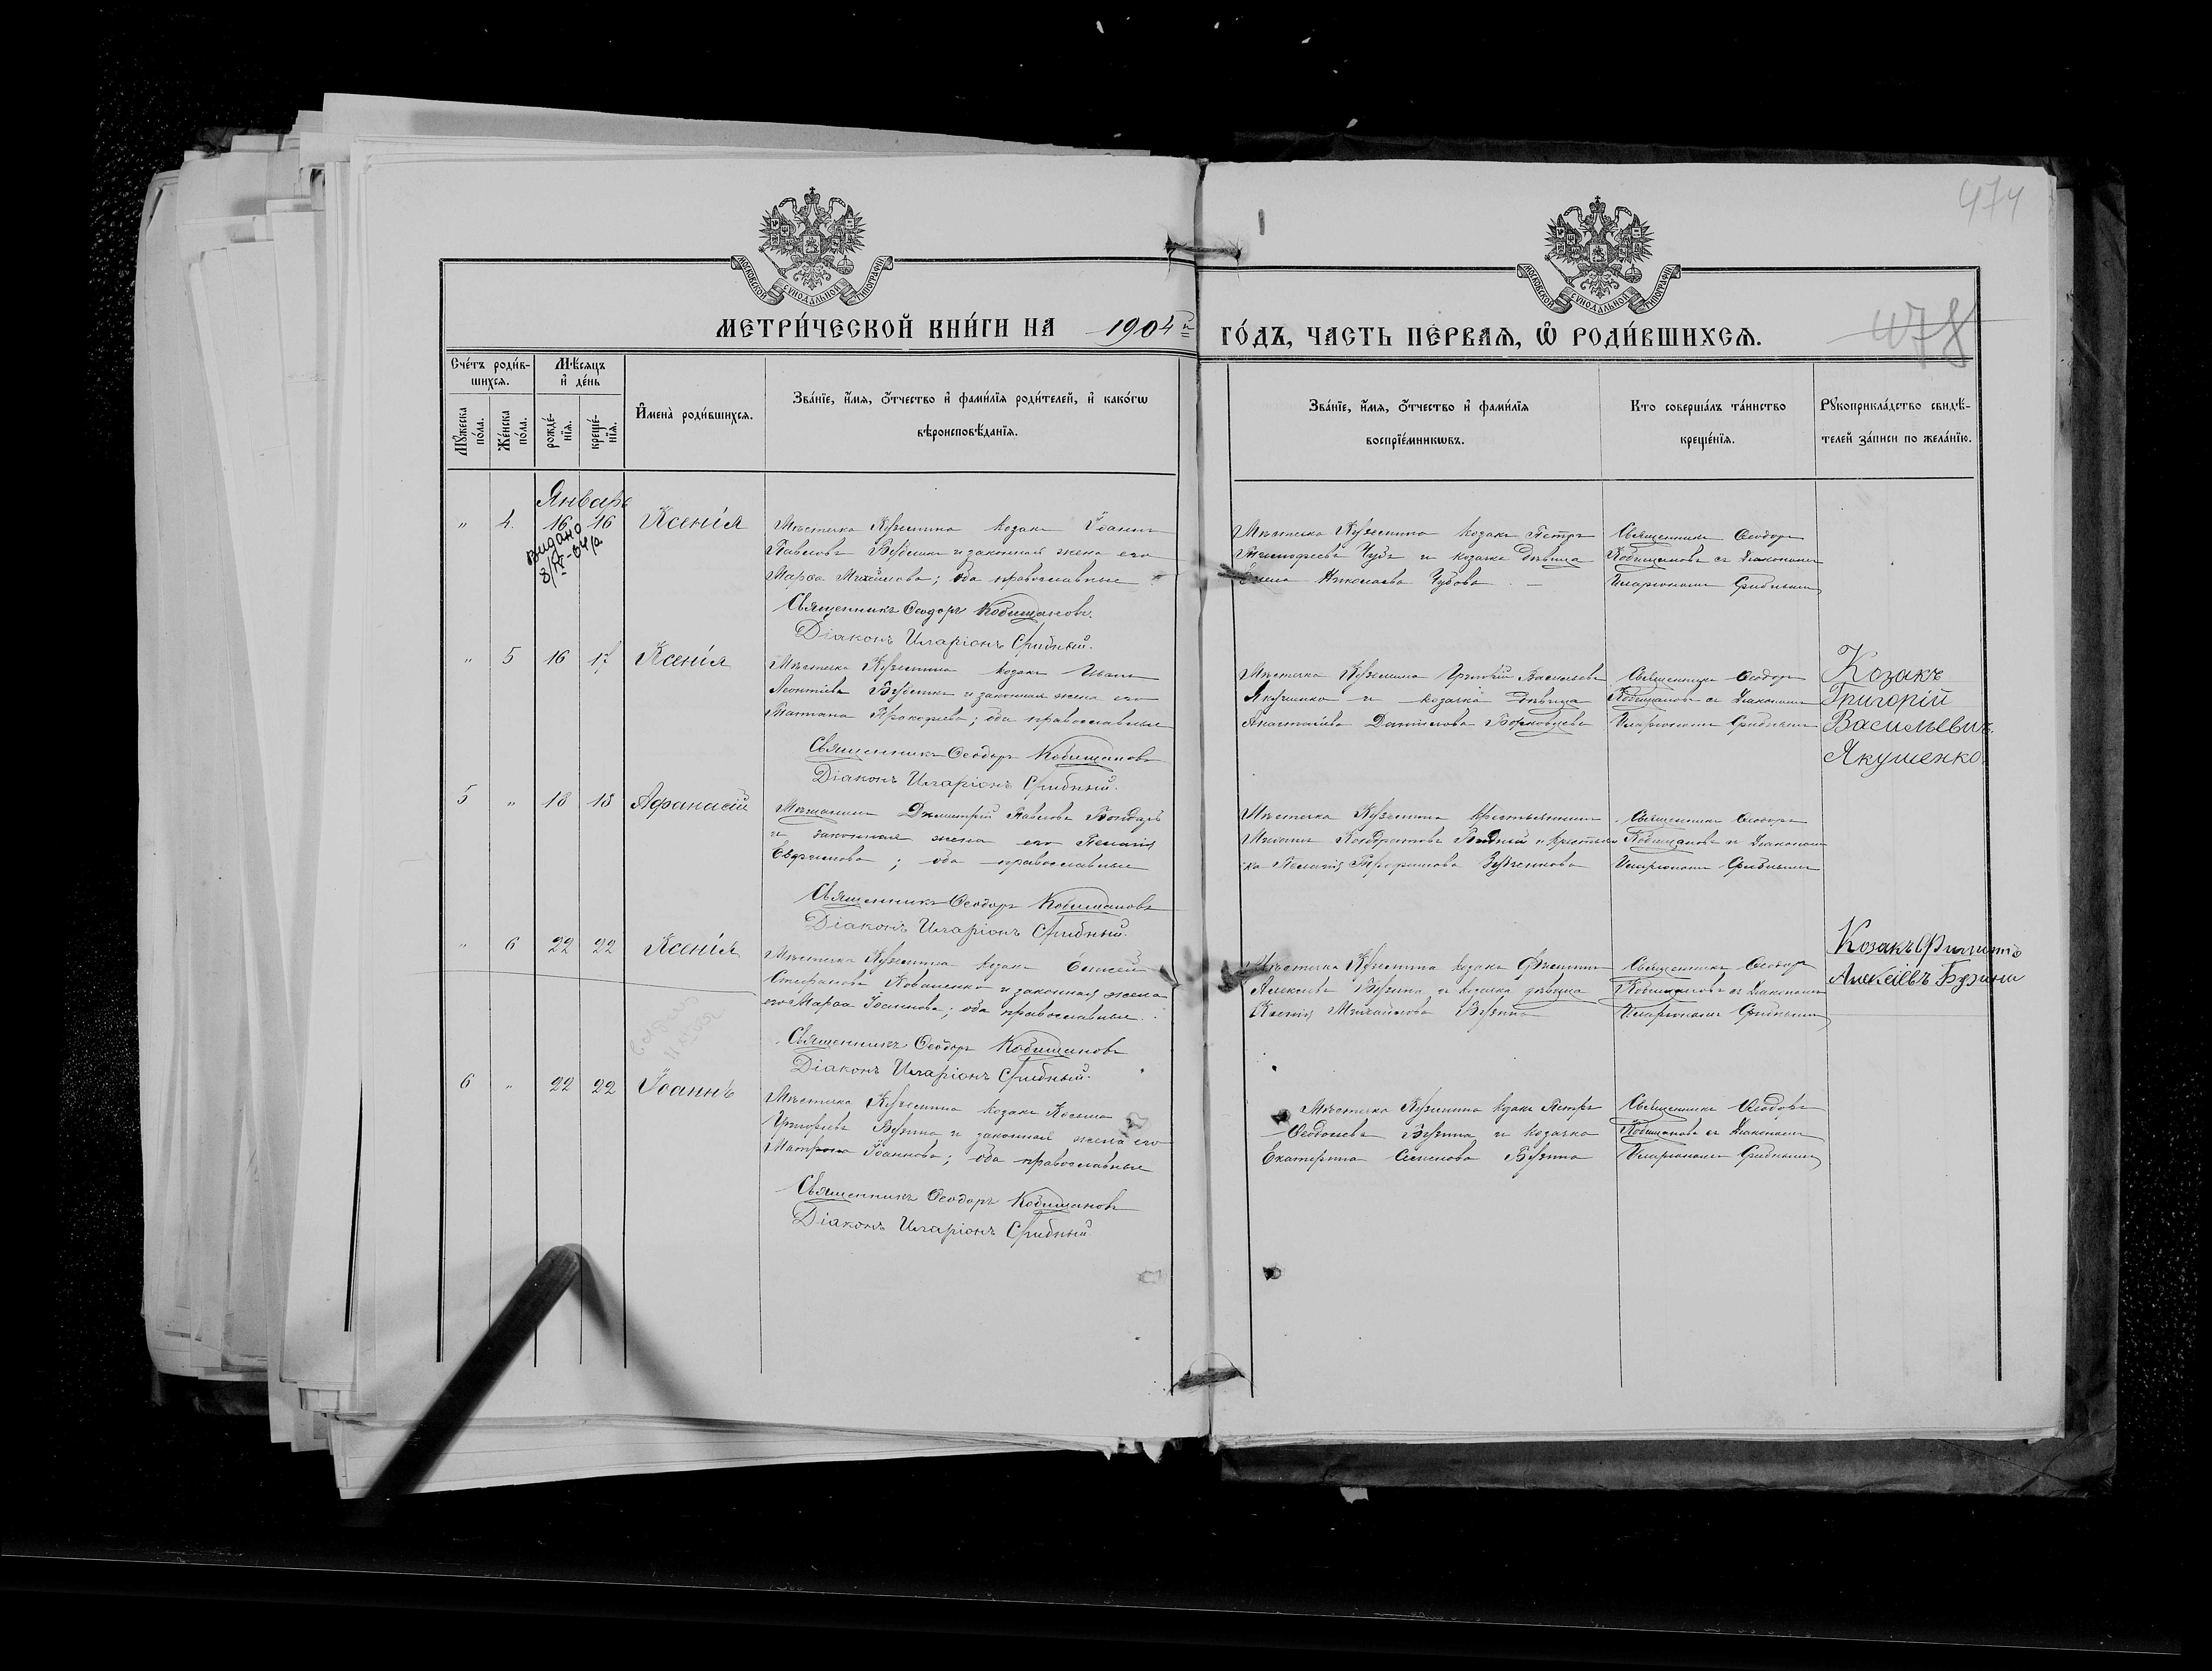 474
478
МОСКОВСКОЙ СѴНОДАЛЬНОЙ ТИПОГРАФІИ
МОСКОВСКОЙ СѴНОДАЛЬНОЙ ТИПОГРАФІИ
МЕТРИ́ЧЕСКОЙ КНИ́ГИ НА 1904 й ГО́ДЪ, ЧАСТЬ ПЕ́РВАЯ, Ѡ҆ РОДИ́ВШИХСЯ.
Сче́тъ роди́в-
шихся.
Мꙋ́жеска
по́ла.
Же́нска
по́ла.
Мѣ́сяцъ
и҆ де́нь
рожде́-
нїя.
креще́-
нїя.
И҆мена̀ роди́вшихся.
Зва́нїе, и҆́мя, ѻ҆́тчество и҆ фами́лїя роди́телей, и҆ како́гѡ
вѣроисповѣ́данїя.
Зва́нїе, и҆́мя, ѻ҆́тчество и҆ фами́лїя
воспрїе́мникѡвъ.
Кто соверша́лъ та́инство
креще́нїя.
Рꙋкоприкла́дство свидѣ́-
телей за́писи по жела́нїю.
Январь
" 4 16 16 Ксенія
видано
Мѣстечка Куземина козакъ Іоаннъ
Павловъ и законная жена его
Марѳа Михайлова; оба православные
Священникъ Ѳеодоръ Кобищановъ.
Діаконъ Иларіонъ Срибный.
Мѣстечка Куземина козакъ Петръ
Тимофеевъ Чубъ и козачка дѣвица
Николаева Чубова
Священникъ Ѳеодоръ
Кобищановъ съ діакономъ
Иларіономъ Срибнымъ
" 5 16 17 Ксенія
Мѣстечка Куземина козакъ Иванъ
Леонтіевъ и законная жена его
Татіана Прокофіева; оба православные
Священникъ Ѳеодоръ Кобищановъ
Діаконъ Иларіонъ Срибный.
Мѣстечка Куземина Григорій Васильевъ
Якушенко и козачка дѣвица
Анастасія Данилова
Священникъ Ѳеодоръ
Кобищановъ съ діакономъ
Иларіономъ Срибнымъ
Козакъ
Григорій
Васильевичъ
Якушенко
5 " 18 18 Афанасій
Мѣщанинъ Димитрій Павловъ Бондарь
и законная жена его Пелагія
Евфимова; оба православные
Священникъ Ѳеодоръ Кобищановъ
Діаконъ Иларіонъ Срибный.
Мѣстечка Куземина крестьянинъ
Кондратовъ и крестьян
ка Пелагія Трофимова
Священникъ Ѳеодоръ
Кобищановъ съ діакономъ
Иларіономъ Срибнымъ
" 6 22 22 Ксенія
Мѣстечка Куземина козакъ Елисей
Стефановъ Коваленко и законная жена
его Марѳа Іоаннова; оба православные.
Священникъ Ѳеодоръ Кобищановъ
Діаконъ Иларіонъ Срибный.
Мѣстечка Куземина козакъ Филиппъ
Алексѣевъ Бузина и козачка дѣвица
Ксенія Михайлова Бузина
Священникъ Ѳеодоръ
Кобищановъ съ діакономъ
Иларіономъ Срибнымъ
Козакъ Филиппъ
Алексіевъ Бузина
6 " 22 22 Іоаннъ
Мѣстечка Куземина козакъ Козьма
Григорьевъ Бузина и законная жена его
Матрона Іоаннова; оба православные
Священникъ Ѳеодоръ Кобищановъ
Діаконъ Иларіонъ Срибный
Мѣстечка Куземина козакъ Петръ
Бузина и козачка
Екатерина Семенова Бузина
Священникъ Ѳеодоръ
Кобищановъ съ діакономъ
Иларіономъ Срибнымъ